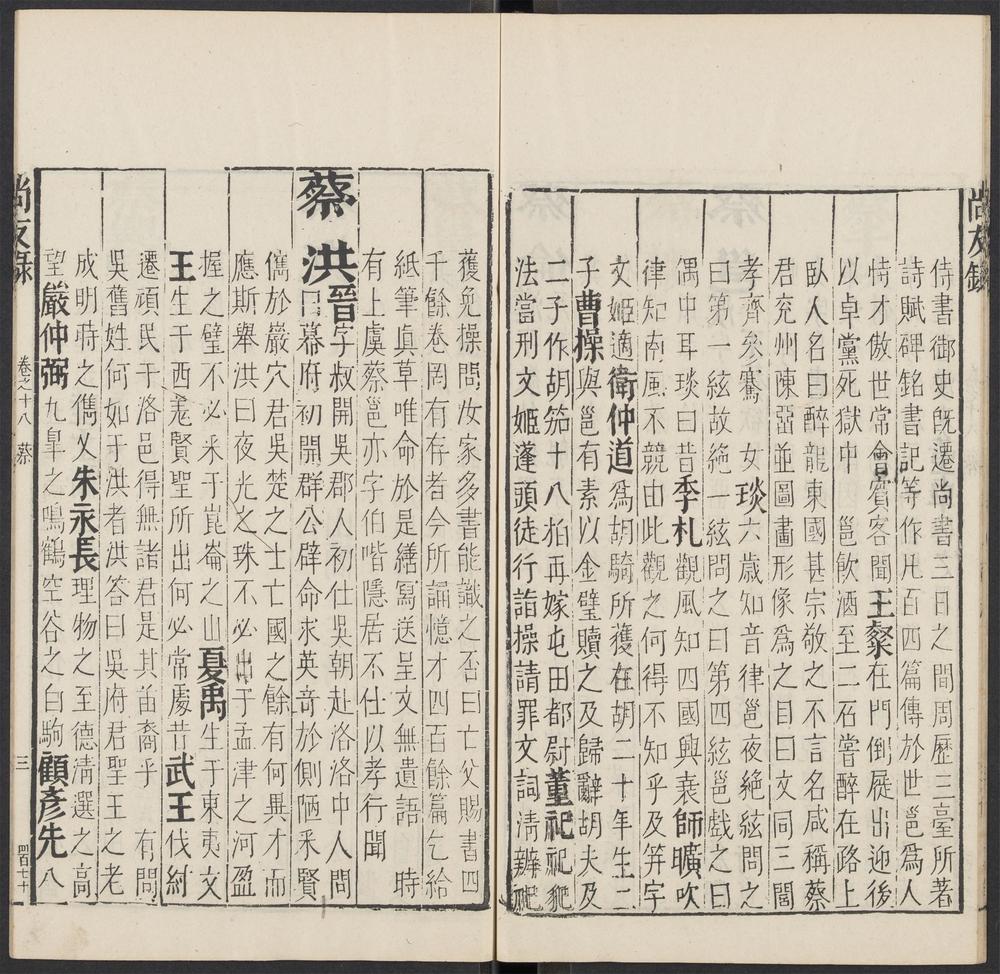 尚友錄
侍書御史旣遷尚書三日之間周歷三臺所著
詩賦碑銘書記等作凡百四篇傳於世邕爲人
恃才傲世常會賓客聞王粲在門倒屣出迎後
以卓黨死獄中 邕飲酒至二石嘗醉在路上
臥人名曰醉龍東國甚宗敬之不言名咸稱蔡
君兗州陳留並圖畫形像爲之目曰文同三閭
孝齊參騫 女琰六歲知音律邕夜絶絃問之
曰第一絃故絶一絃問之曰第四絃邕戲之曰
偶中耳琰曰昔季札觀風知四國興衰師曠吹
律知南風不競由此觀之何得不知乎及笄字
文姬適衛仲道爲胡騎所獲在胡二十年生二
子曹操與邕有素以金璧贖之及歸辭胡夫及
二子作胡笳十八拍再嫁屯田都尉董祀祀犯
法當刑文姬蓬頭徒行詣操請罪文詞淸辨祀
獲免操問汝家多書能識之否曰亡父賜書四
千餘卷罔有存者今所誦憶才四百餘篇乞給
紙筆眞草唯命於是繕寫送呈文無遺語 時
有上虞蔡邕亦字伯喈隱居不仕以孝行聞
蔡洪晉字叔開吳郡人初仕吳朝赴洛洛中人問
曰幕府初開群公辟命求英奇於側陋采賢
儁於巖穴君吳楚之士亡國之餘有何異才而
應斯舉洪曰夜光之珠不必出于孟津之河盈
握之璧不必采于崑崙之山夏禹生于東夷文
王生于西羌賢聖所出何必常處昔武王伐紂
遷頑民于洛邑得無諸君是其苗裔乎 有問
吳舊姓何如于洪者洪答曰吳府君聖王之老
成明時之儁乂朱永長理物之至德淸選之高
望嚴仲弼九皐之鳴鶴空谷之白駒顧彥先八
尚友錄
卷之十八 蔡
三